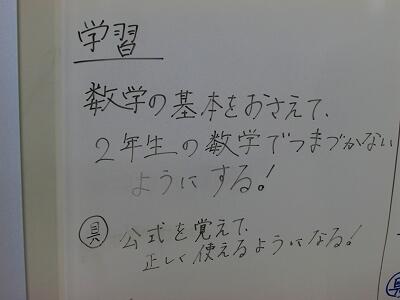 学習
数学の基本をおさえて、
2年生の数学でつまづかない
ようにする!
具 公式を覚えて、
正しく使えるようになる!